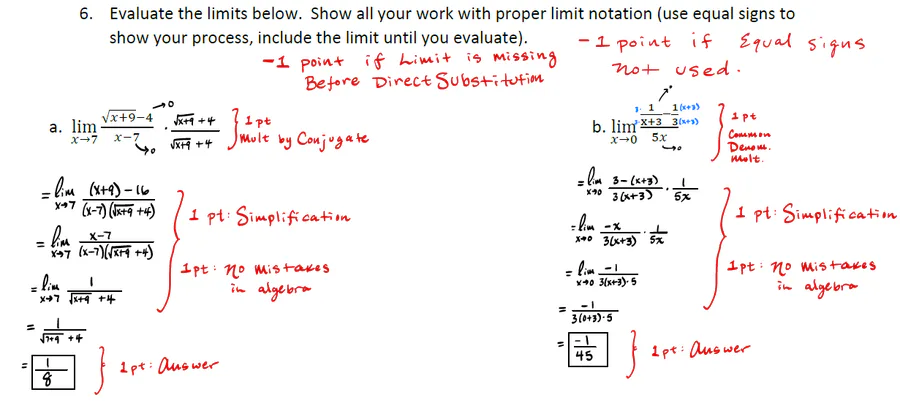 6. Evaluate the limits below. Show all your work with proper limit notation (use equal signs to
show your process, include the limit until you evaluate).
-1 point if Limit is missing
Before Direct Substitution
-1 point if Equal signs
not used.
a. lim x→7 (√x+9−4)/(x−7) · (√x+9 +4)/(√x+9 +4)
→0
→0
1 pt
Mult by Conjugate
= lim x→7 ((x+9)−16)/((x−7)(√x+9 +4))
= lim x→7 (x−7)/((x−7)(√x+9 +4))
= lim x→7 1/(√x+9 +4)
= 1/(√7+9 +4)
= 1/8
1 pt: Simplification
1pt: no mistakes
in algebra
1pt: Answer
b. lim x→0 (3· 1/(x+3) − 1(x+3)/3(x+3))/(5x)
→0
1 pt
Common
Denom.
Mult.
= lim x→0 (3−(x+3))/(3(x+3)) · 1/(5x)
= lim x→0 (−x)/(3(x+3)) · 1/(5x)
= lim x→0 (−1)/(3(x+3)·5)
= (−1)/(3(0+3)·5)
= −1/45
1 pt: Simplification
1pt: no mistakes
in algebra
1pt: Answer